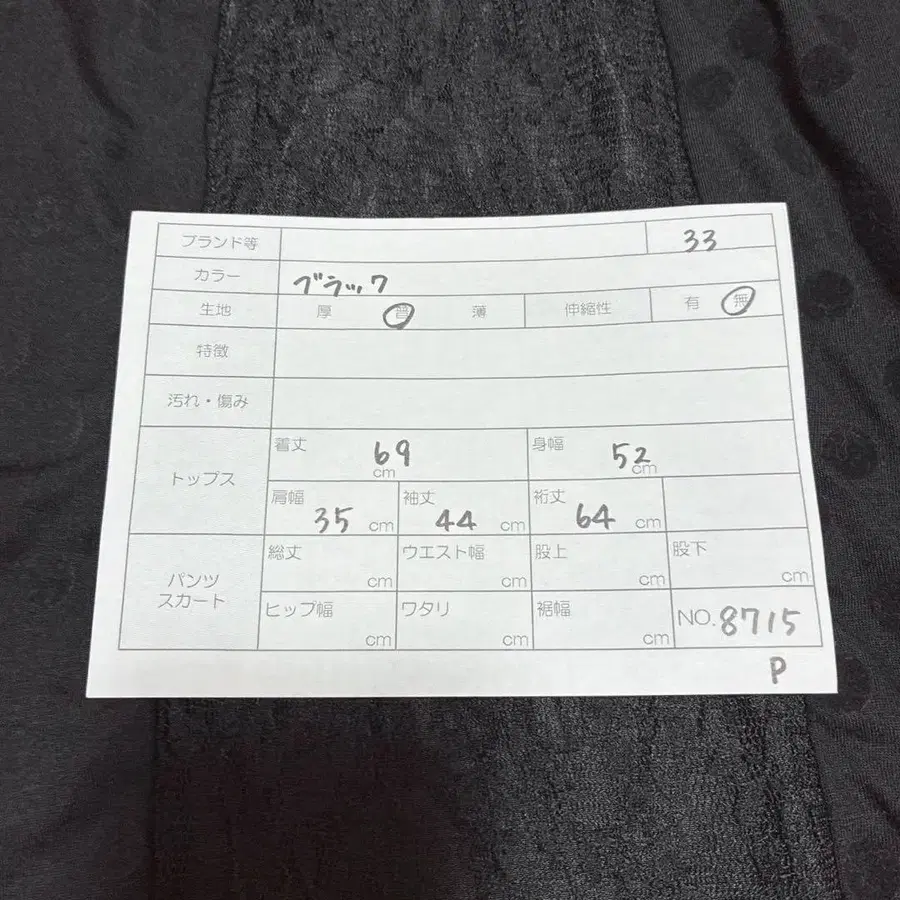 ブランド等 33
カラー ブラック
生地 厚 普 薄 伸縮性 有 無
特徴
汚れ・傷み
トップス
着丈 69 cm 身幅 52 cm
肩幅 35 cm 袖丈 44 cm 裄丈 64 cm
パンツ
スカート
総丈 cm ウエスト幅 cm 股上 cm 股下 cm
ヒップ幅 cm ワタリ cm 裾幅 cm NO. 8715
P